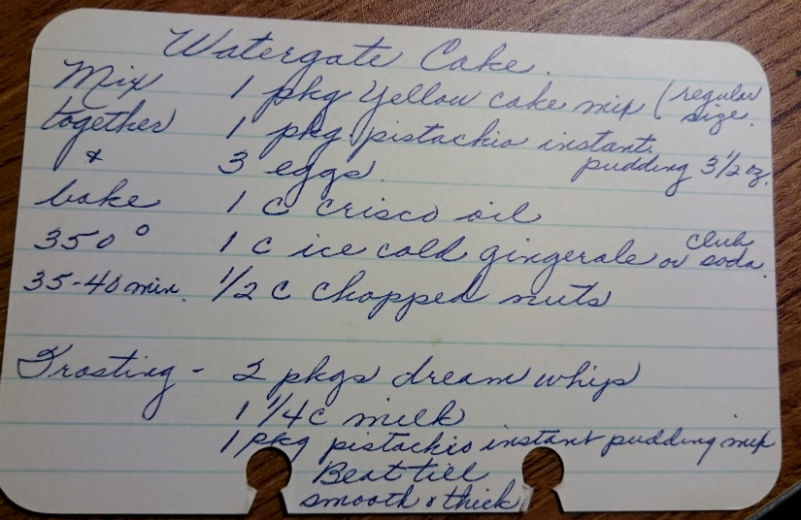 Watergate Cake.
Mix 1 pkg Yellow cake mix (regular size.
together 1 pkg pistachio instant pudding 3 1/2 oz.
& 3 eggs
bake 1 c crisco oil
350° 1 c ice cold gingerale or club soda.
35-40 min. 1/2 c chopped nuts
Frosting - 2 pkgs dream whip
1 1/4 c milk
1 pkg pistachio instant pudding mix
Beat till
smooth & thick